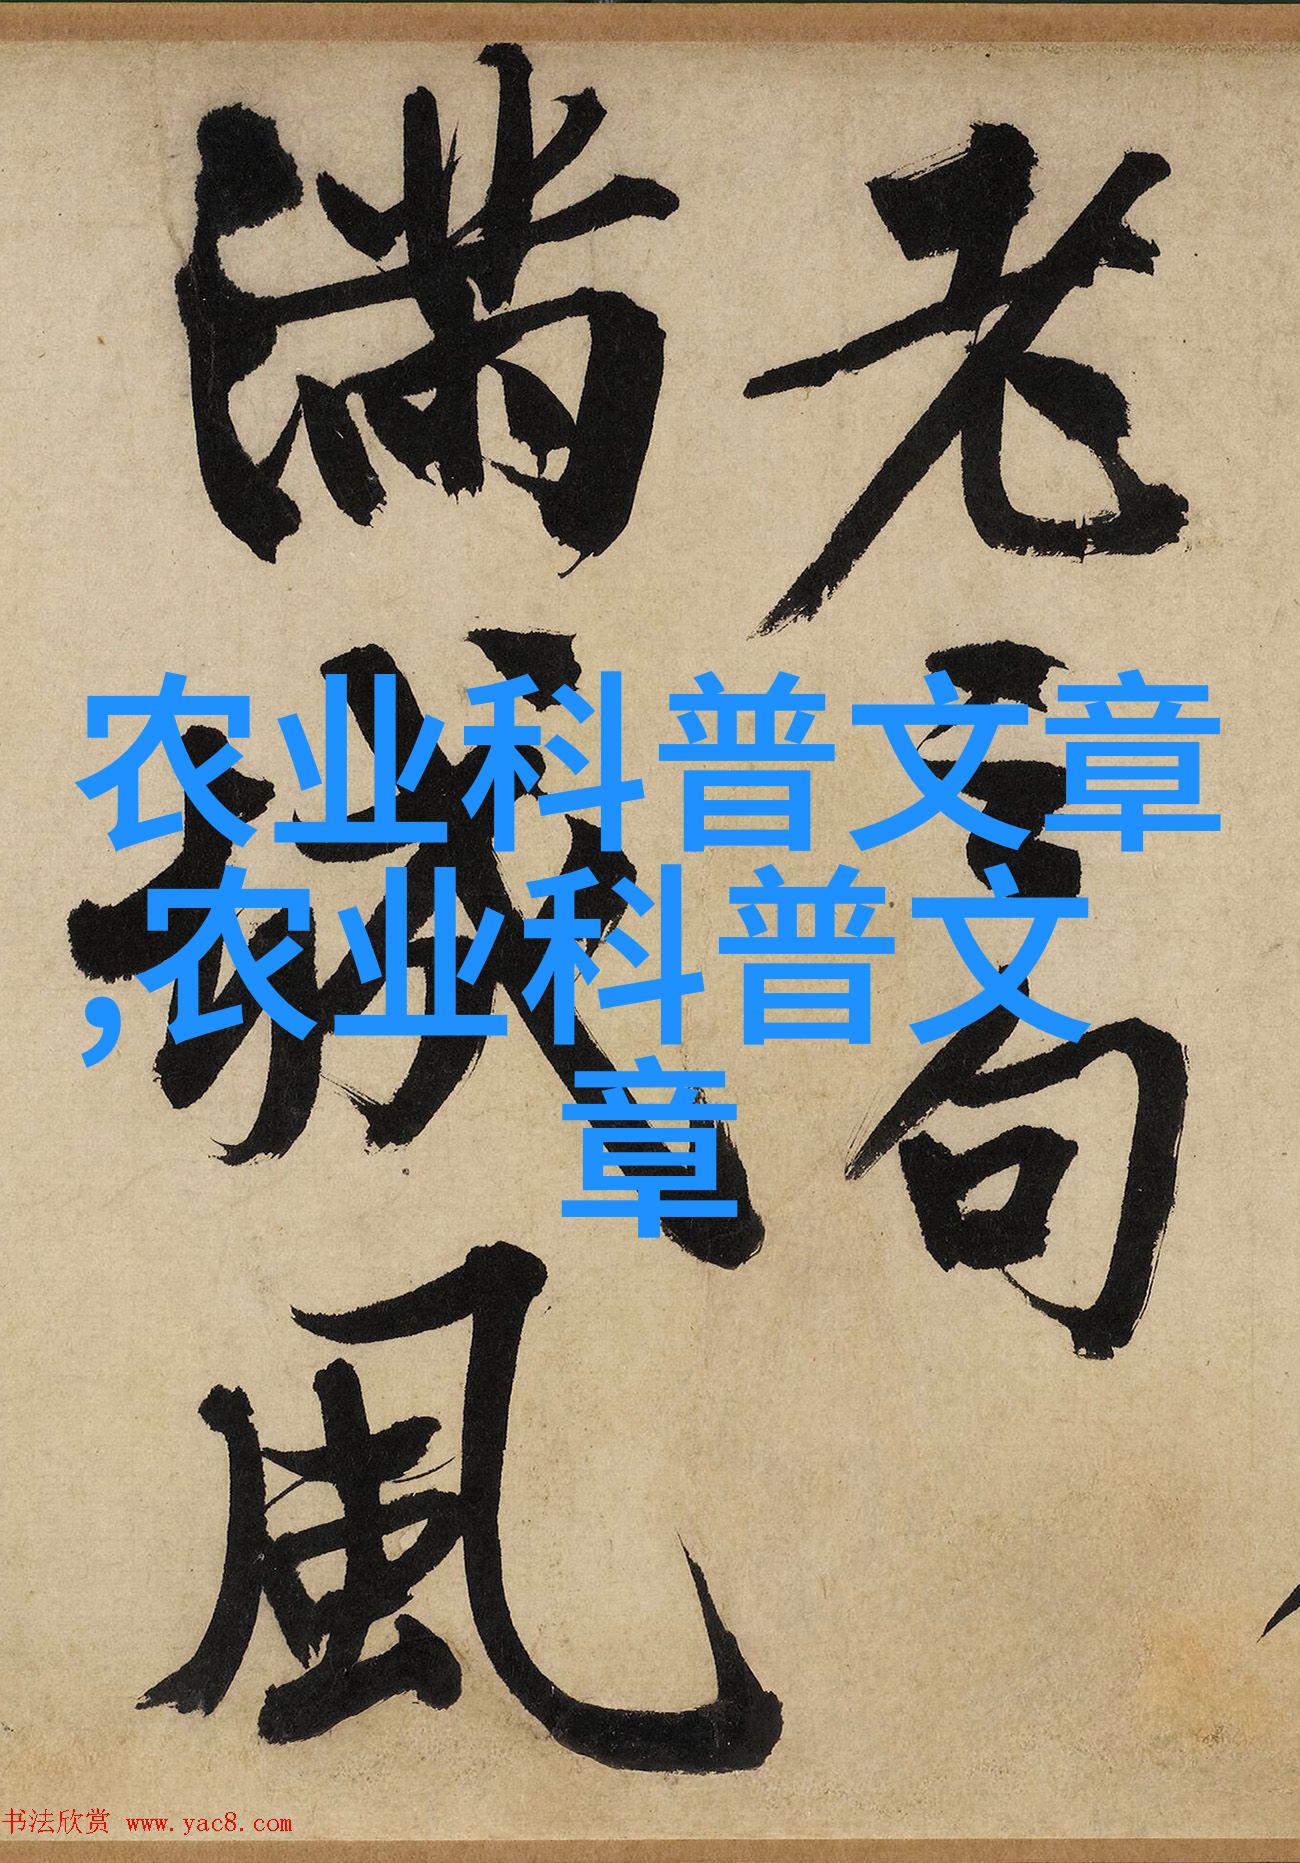 老句
滿城風
农业科普文章
,农业科普文
章
书法欣赏 www.yac8.com